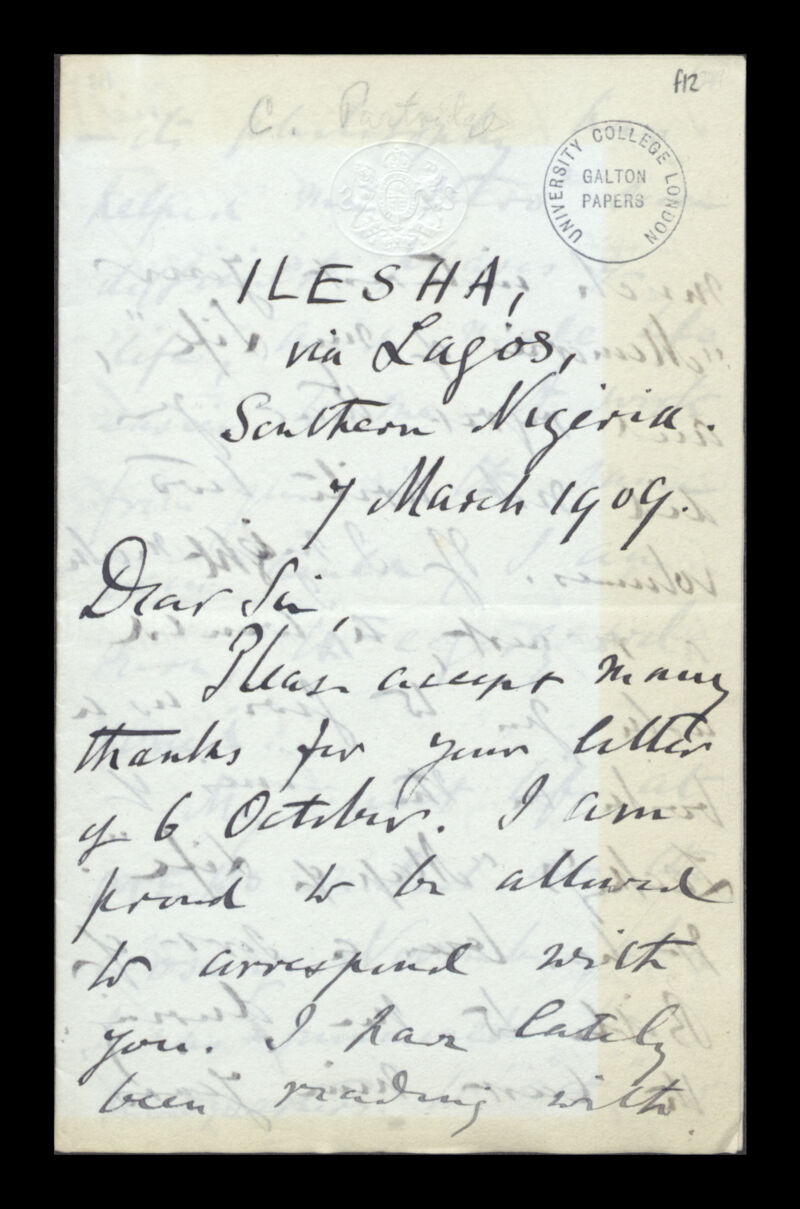 f12
C. Partridge
UNIVERSITY COLLEGE LONDON
GALTON
PAPERS
ILESHA,
via Lagos,
Southern Nigeria.
7 March 1909.
Dear Sir,
Please accept many
thanks for your letter
of 6 October. I am
proud to be allowed
to correspond with
you. I have lately
been reading with